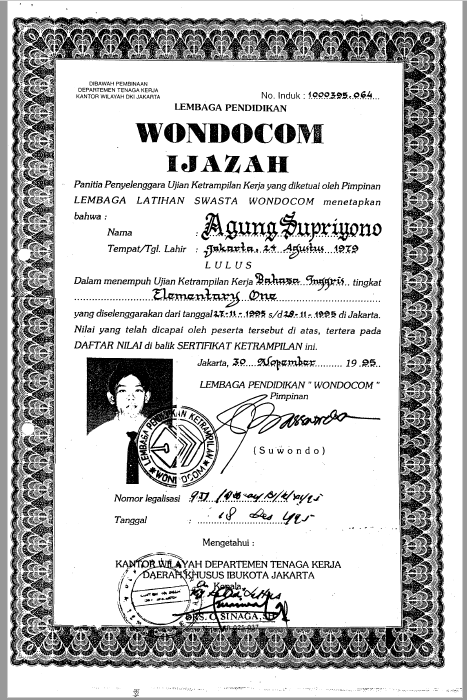 DIBAWAH PEMBINAAN
DEPARTEMEN TENAGA KERJA
KANTOR WILAYAH DKI JAKARTA
No. Induk : 1000395.064
LEMBAGA PENDIDIKAN
WONDOCOM
IJAZAH
Panitia Penyelenggara Ujian Ketrampilan Kerja yang diketuai oleh Pimpinan
LEMBAGA LATIHAN SWASTA WONDOCOM menetapkan
bahwa :
Nama : Agung Supriyono
Tempat/Tgl. Lahir : Jakarta, 24 Agustus 1979
LULUS
Dalam menempuh Ujian Ketrampilan Kerja Bahasa Inggris tingkat
Elementary One
yang diselenggarakan dari tanggal 27-11-1995 s/d 28-11-1995 di Jakarta.
Nilai yang telah dicapai oleh peserta tersebut di atas, tertera pada
DAFTAR NILAI di balik SERTIFIKAT KETRAMPILAN ini.
Jakarta, 30 Nopember 1995
LEMBAGA PENDIDIKAN " WONDOCOM "
Pimpinan
LEMBAGA PENDIDIKAN KETRAMPILAN
WONDOCOM
(Suwondo)
Nomor legalisasi
Tanggal : 18 Des 1995
Mengetahui :
KANTOR WILAYAH DEPARTEMEN TENAGA KERJA
DAERAH KHUSUS IBUKOTA JAKARTA
Kepala
DRS. O. SINAGA, SH